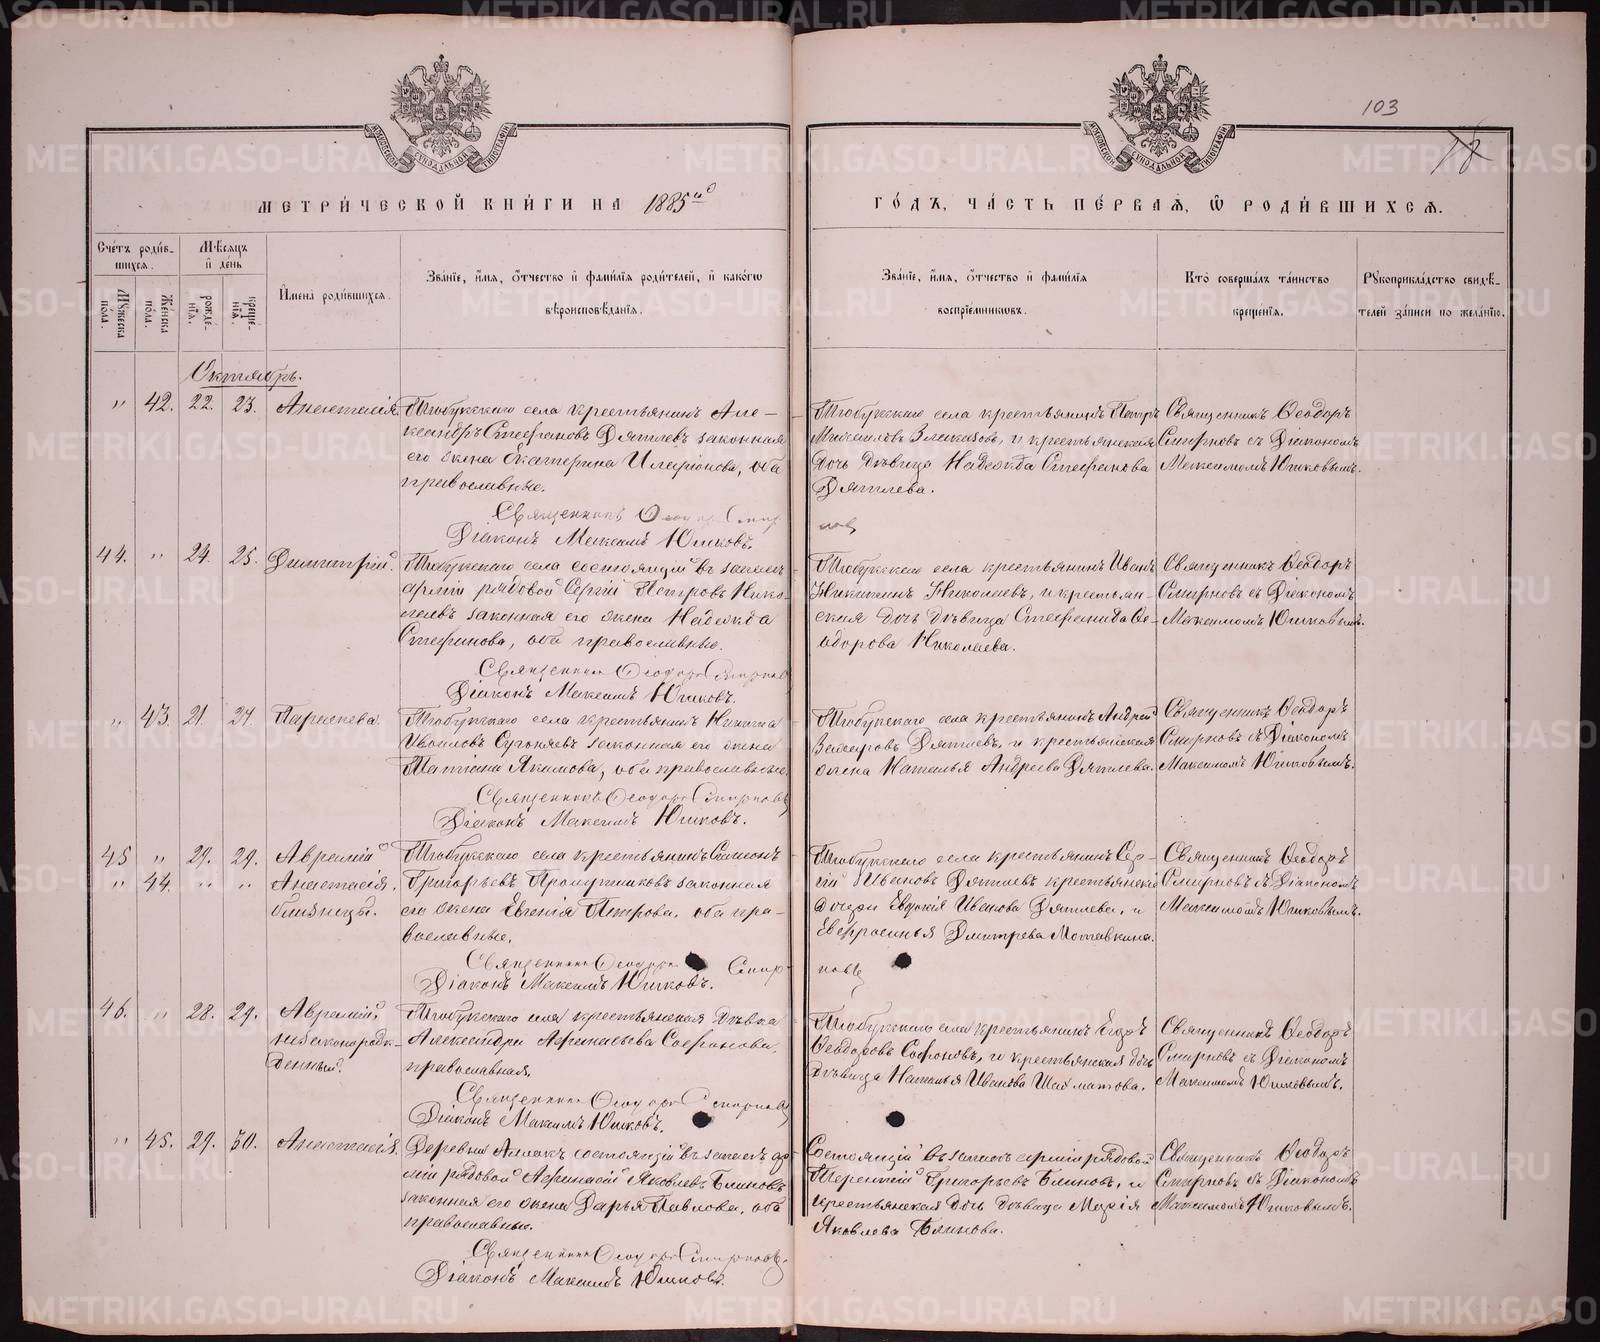 103
МЕТРИ́ЧЕСКОЙ КНИ́ГИ НА 1885й
ГО́ДЪ, ЧА́СТЬ ПЕ́РВАѦ, Ѿ РОДИ́ВШИХСѦ.
Сче́тъ роди́в-
шихсѧ.
Мѣ́сѧцъ
и҆ де́нь
Мꙋ́жеска
по́ла.
Же́нска
по́ла.
рожде́-
нїѧ.
креще́-
нїѧ.
И҆мена̀ роди́вшихсѧ.
Зва́нїе, и҆́мѧ, ѻ҆́тчество и҆ фами́лїѧ роди́телей, и҆ како́гѡ
вѣроисповѣ́данїѧ.
Зва́нїе, и҆́мѧ, ѻ҆́тчество и҆ фами́лїѧ
воспрїе́мникѡвъ.
Кто̀ соверша́лъ та́инство
креще́нїѧ.
Рꙋкоприкла́дство свидѣ́-
телей за́писи по жела́нїю.
Октябрь.
" 42. 22. 23. Анастасія.
Тюбукскаго села крестьянинъ Але-
ксандръ Стефановъ Дятлевъ законная
его жена Екатерина Иларіонова, оба
православные.
Священникъ Ѳеодоръ Смир
новъ
Діаконъ Максимъ Юшковъ.
Тюбукскаго села крестьянинъ Петръ
Михаиловъ и крестьянская
дочь дѣвица Надежда Стефанова
Дятлева.
Священникъ Ѳеодоръ
Смирновъ съ Діакономъ
Максимомъ Юшковымъ.
44. " 24. 25. Димитрій.
Тюбукскаго села состоящій въ запасѣ
арміи рядовой Сергій Петровъ Нико-
лаевъ законная его жена Надежда
Стефанова, оба православные.
Священникъ Ѳеодоръ Смирновъ
Діаконъ Максимъ Юшковъ.
Тюбукскаго села крестьянинъ Иванъ
Никитинъ Николаевъ, и крестьян-
ская дочь дѣвица Стефанида Ѳе-
одорова Николаева.
Священникъ Ѳеодоръ
Смирновъ съ Діакономъ
Максимомъ Юшковымъ.
" 43. 21. 27. Параскева.
Тюбукскаго села крестьянинъ Никита
законная его жена
Татіана Якимова, оба православные.
Священникъ Ѳеодоръ Смирновъ
Діаконъ Максимъ Юшковъ.
Тюбукскаго села крестьянинъ Андрей
Дятлевъ, и крестьянская
жена Наталья Андреева Дятлева.
Священникъ Ѳеодоръ
Смирновъ съ Діакономъ
Максимомъ Юшковымъ.
45 " 29. 29. Аврамій
" 44. " " Анастасія.
близнецы.
Тюбукскаго села крестьянинъ Симеонъ
Григорьевъ законная
его жена Евгенія Петрова, оба пра-
вославные.
Священникъ Ѳеодоръ Смир-
новъ
Діаконъ Максимъ Юшковъ.
Тюбукскаго села крестьянинъ Сер-
гій Ивановъ Дятлевъ крестьянскія
дочери Евдокія Иванова Дятлева, и
Евфросинья Дмитрева Мотавкина.
Священникъ Ѳеодоръ
Смирновъ съ Діакономъ
Максимомъ Юшковымъ.
46. " 28. 29. Аврамій,
незаконорож-
денный.
Тюбукскаго села крестьянская дѣвка
Александра Афанасьева Софонова,
православная.
Священникъ Ѳеодоръ Смирновъ
Діаконъ Максимъ Юшковъ.
Тюбукскаго села крестьянинъ Егоръ
Ѳеодоровъ Софоновъ, и крестьянская дочь
дѣвица Наталья Иванова Шахматова.
Священникъ Ѳеодоръ
Смирновъ съ Діакономъ
Максимомъ Юшковымъ.
" 45. 29. 30. Анастасія.
Деревни Аллакъ состоящій въ запасѣ ар
міи рядовой Афанасій Яковлевъ Блиновъ
законная его жена Дарья Павлова, оба
православные.
Священникъ Ѳеодоръ Смирновъ.
Діаконъ Максимъ Юшковъ.
Состоящій въ запасѣ арміи рядовой
Терентій Григорьевъ Блиновъ, и
крестьянская дочь дѣвица Марія
Яковлева Блинова.
Священникъ Ѳеодоръ
Смирновъ съ Діакономъ
Максимомъ Юшковымъ.